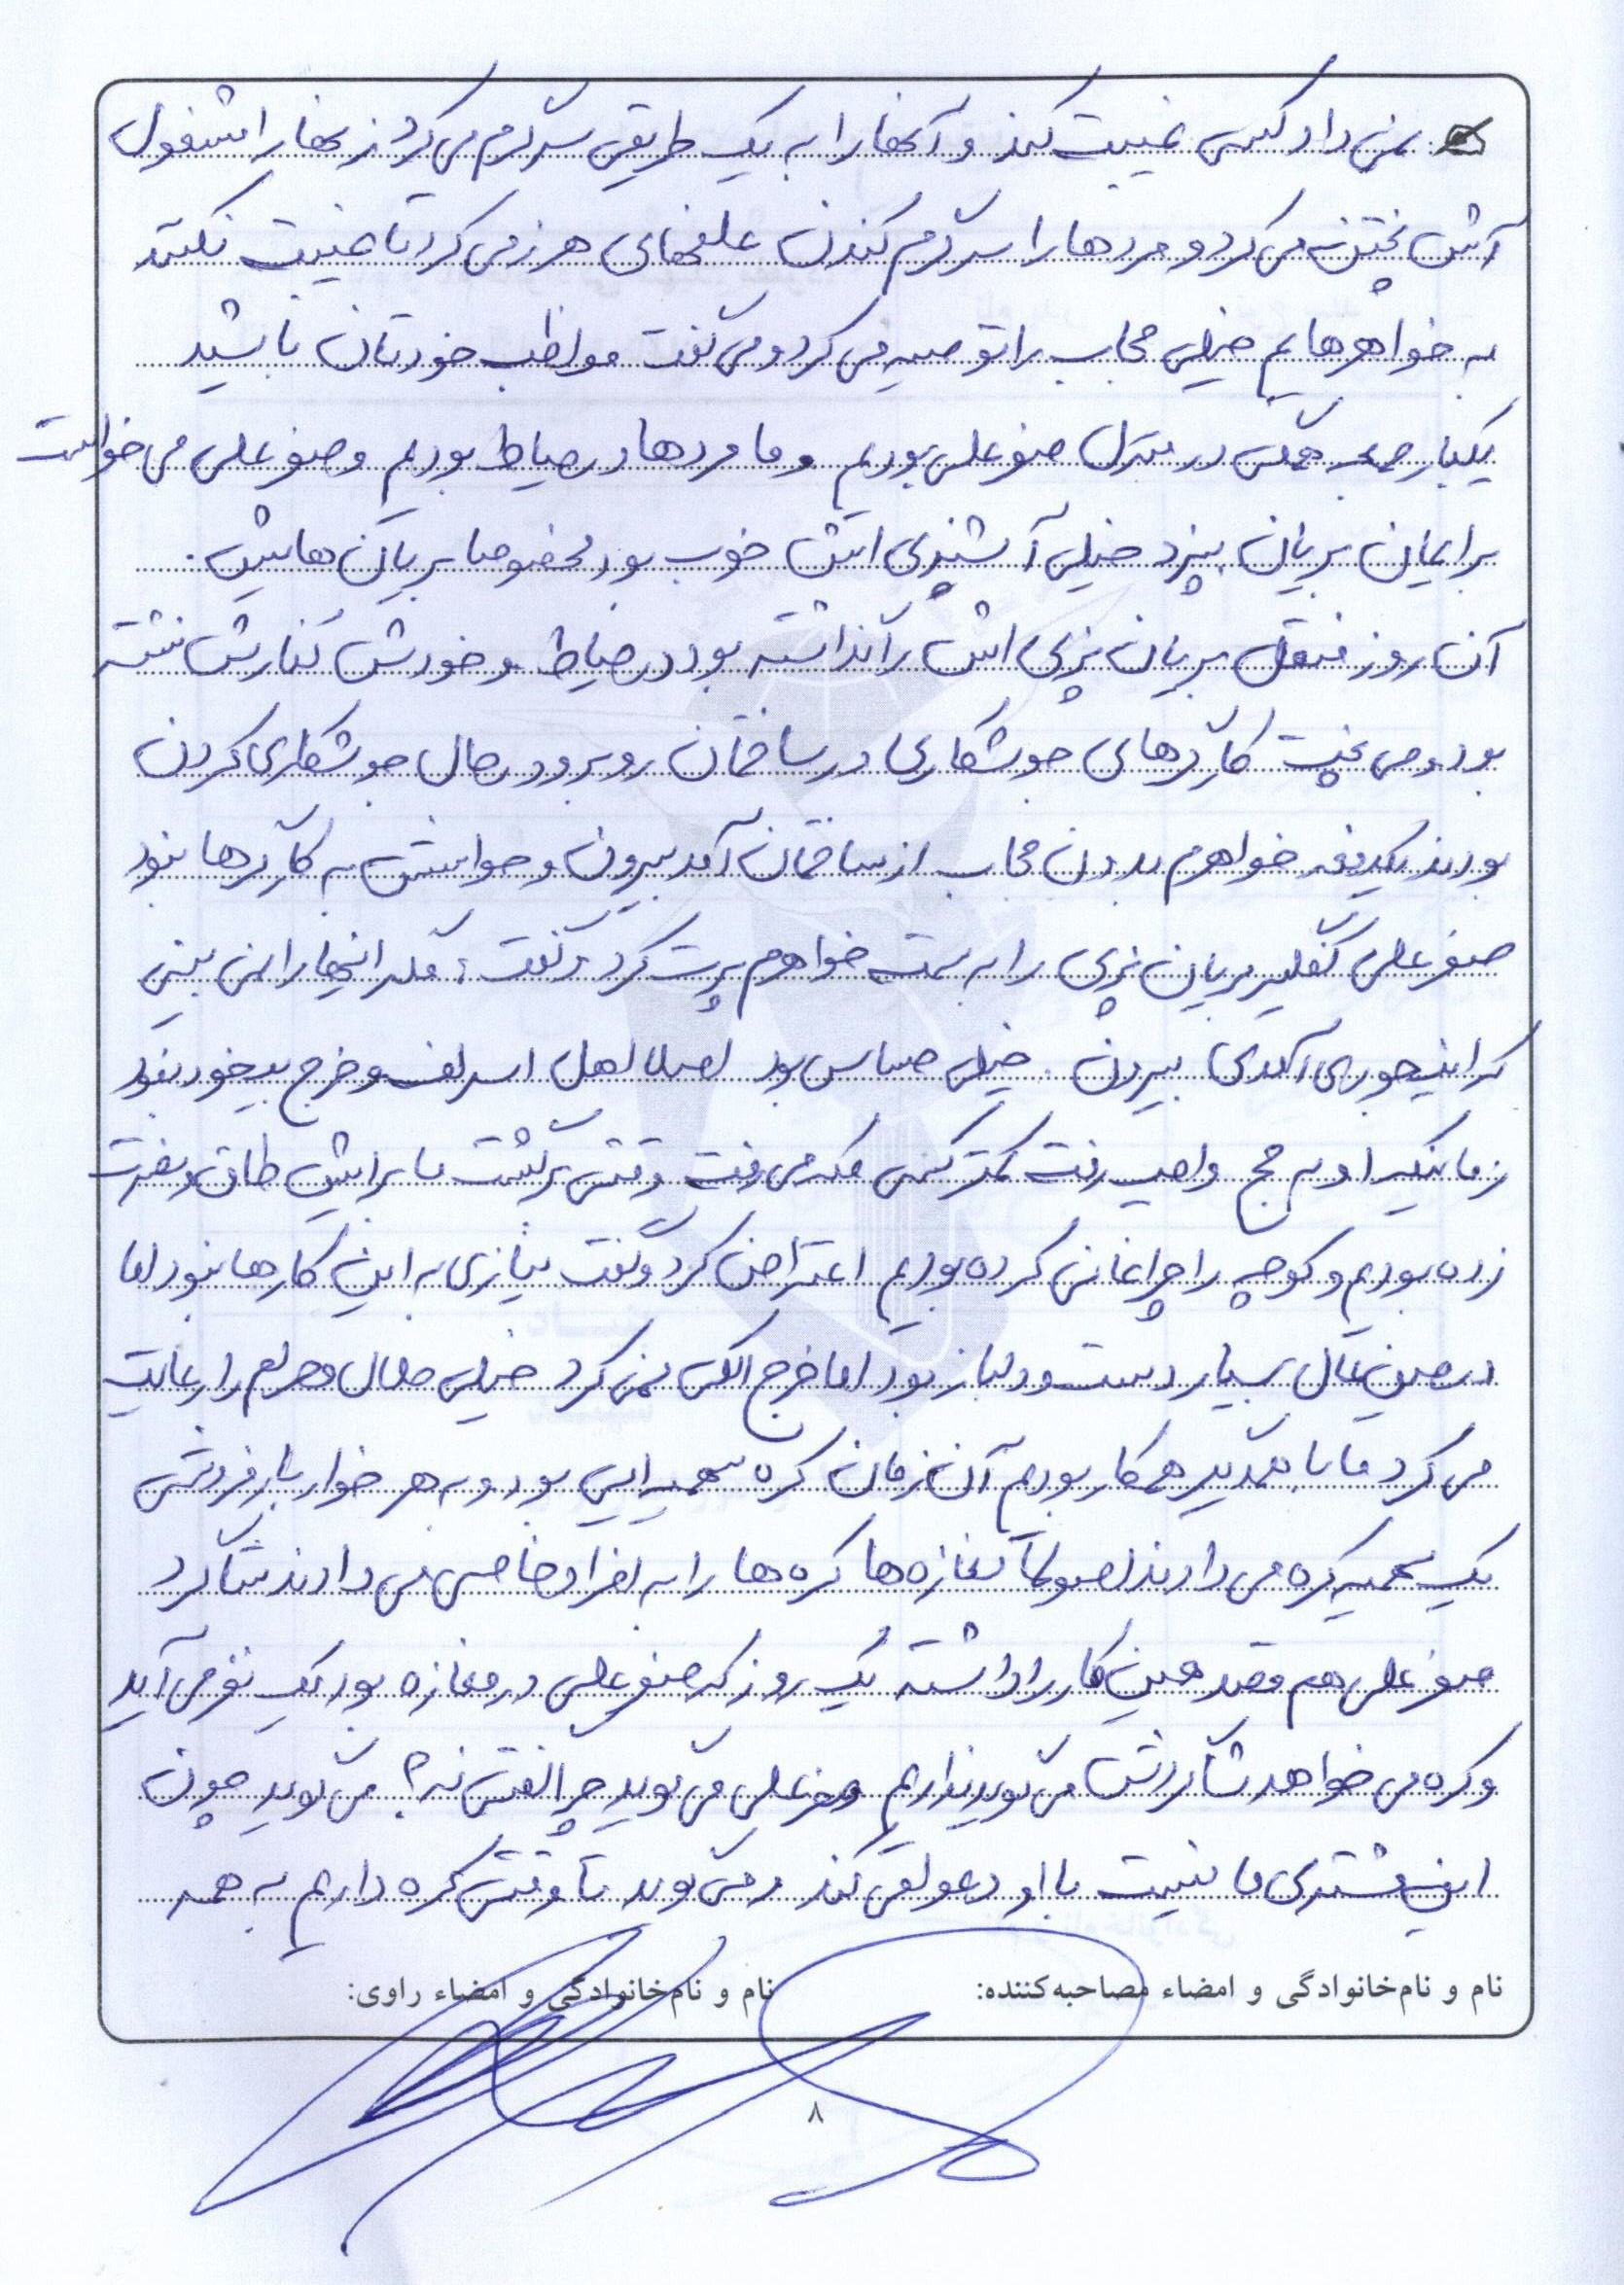 نمی داد کسی غیبت کند و آنها را به یک طریقی سرگرم می کرد زنها را مشغول
آش پختن می کرد و مردها را سرگرم کندن علفهای هرز می کرد تا غیبت نکنند
به خواهرهایم خیلی حجاب را توصیه می کرد و می گفت مواظب خودتان باشید
یکبار صبح همگی در منزل صفرعلی بودیم و ما مردها در حیاط بودیم و صفرعلی می خواست
برایمان بریان بپزد خیلی آشپزی اش خوب بود مخصوصا بریان هایش.
آن روز منقل بریان پزی اش را گذاشته بود در حیاط و خودش کنارش نشسته
بود و می پخت کارگرهای جوشکاری در ساختمان روبرو در حال جوشکاری کردن
بودند یکدفعه خواهرم بدون حجاب از ساختمان آمد بیرون و حواسش به کارگرها نبود
صفرعلی کفگیر بریان پزی را به سمت خواهرم پرت کرد و گفت: مگر اینها را نمی بینی
که اینجوری آمدی بیرون. خیلی حساس بود اصلا اهل اسراف و خرج بیخود نبود
زمانیکه او به حج واجب رفت کمتر کسی مکه می رفت وقتی برگشت ما برایش طاق نصرت
زده بودیم و کوچه را چراغانی کرده بودیم اعتراض کرد و گفت نیازی به این کارها نبود اما
در عین حال بسیار دست و دلباز بود اما خرج الکی نمی کرد خیلی حلال و حرام را رعایت
می کرد ما با همدیگر همکار بودیم آن زمان کره سهمیه ایی بود و به هر خوار بار فروشی
یک سهمیه کره می دادند اصولا مغازه ها کره ها را به افراد خاصی می دادند شاگرد
صفرعلی هم قصد همین کار را داشته یک روز که صفرعلی در مغازه بود یک نفر می آید
و کره می خواهد شاگردش می گوید نداریم صفرعلی می گوید چرا گفتی نه؟ می گوید چون
این مشتری ما نیست با او دعوا می کند و می گوید تا وقتی کره داریم به همه
نام و نام‌خانوادگی و امضاء مصاحبه‌کننده: نام و نام‌خانوادگی و امضاء راوی:
۸